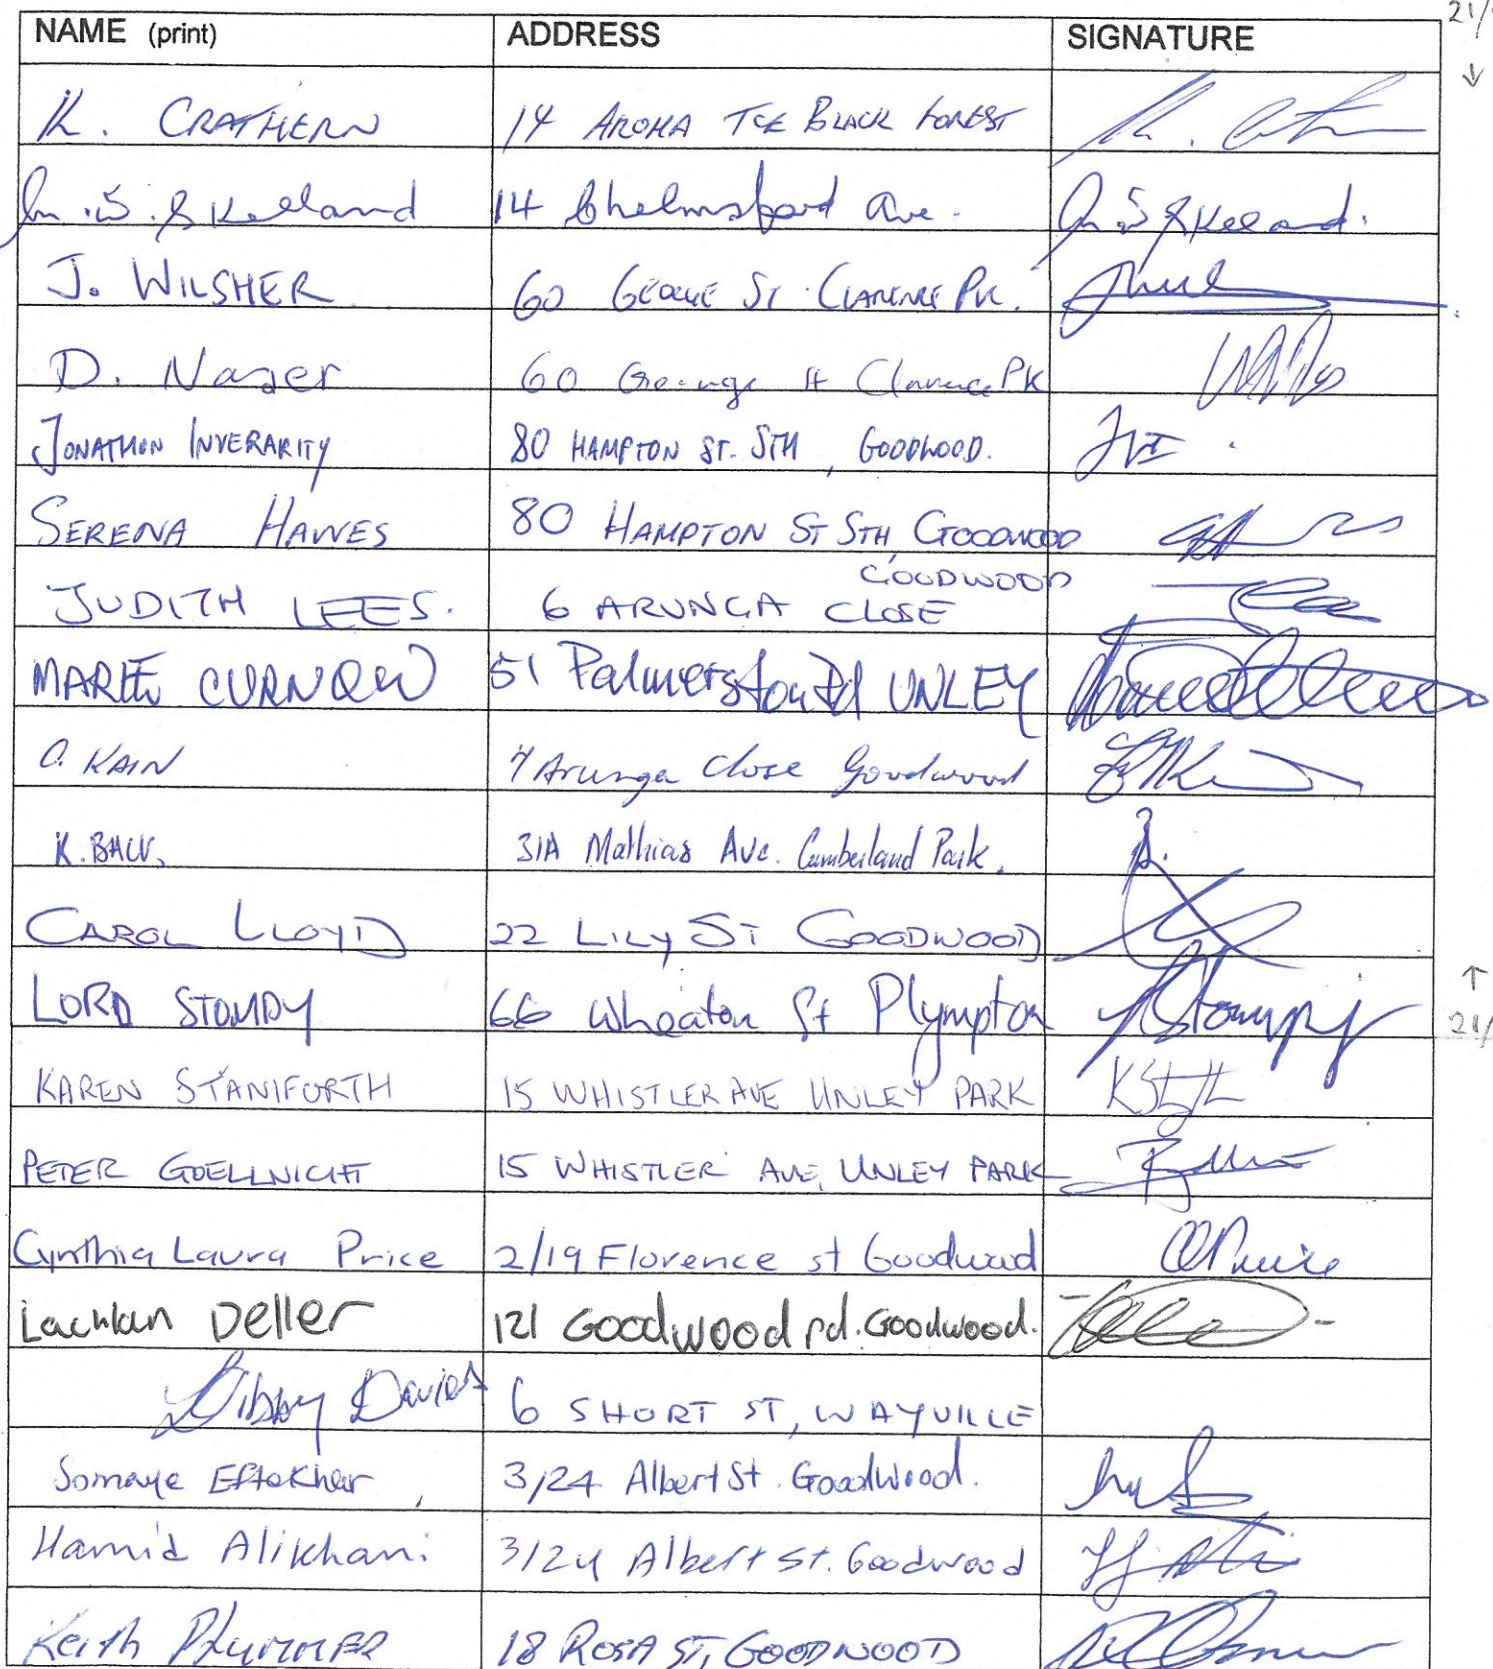 21/
NAME (print) ADDRESS SIGNATURE
↓
K. CRATHERN 14 AROHA TCE BLACK FOREST
M. S. Skelland 14 Chelmsford Ave. M S Skelland.
J. WILSHER 60 GEORGE ST CLARENCE PK.
D. Naser 60 George St Clarence PK
JONATHON INVERARITY 80 HAMPTON ST. STH, GOODWOOD. JVI
SERENA HAWES 80 HAMPTON ST STH, GOODWOOD
GOODWOOD
JUDITH LEES. 6 ARUNGA CLOSE
MARIE CURNOW 51 Palmerston Rd UNLEY
O. KAIN 7 Arunga Close Goodwood
K. 31A Mathias Ave. Cumberland Park.
CAROL LLOYD 22 LILY ST GOODWOOD
LORD STOMPY 66 Wheaton St Plympton Stompy
↑
21/
KAREN STANIFORTH 15 WHISTLER AVE UNLEY PARK
PETER GOELLNICHT 15 WHISTLER AVE, UNLEY PARK
Cynthia Laura Price 2/19 Florence st Goodwood CPrice
Lachlan Deller 121 Goodwood rd. Goodwood.
Libby Davies 6 SHORT ST, WAYVILLE
Somaye Eftekhar 3/24 Albert St. Goodwood.
Hamid Alikhani 3/24 Albert St. Goodwood
Keith PLUMMER 18 ROSA ST, GOODWOOD